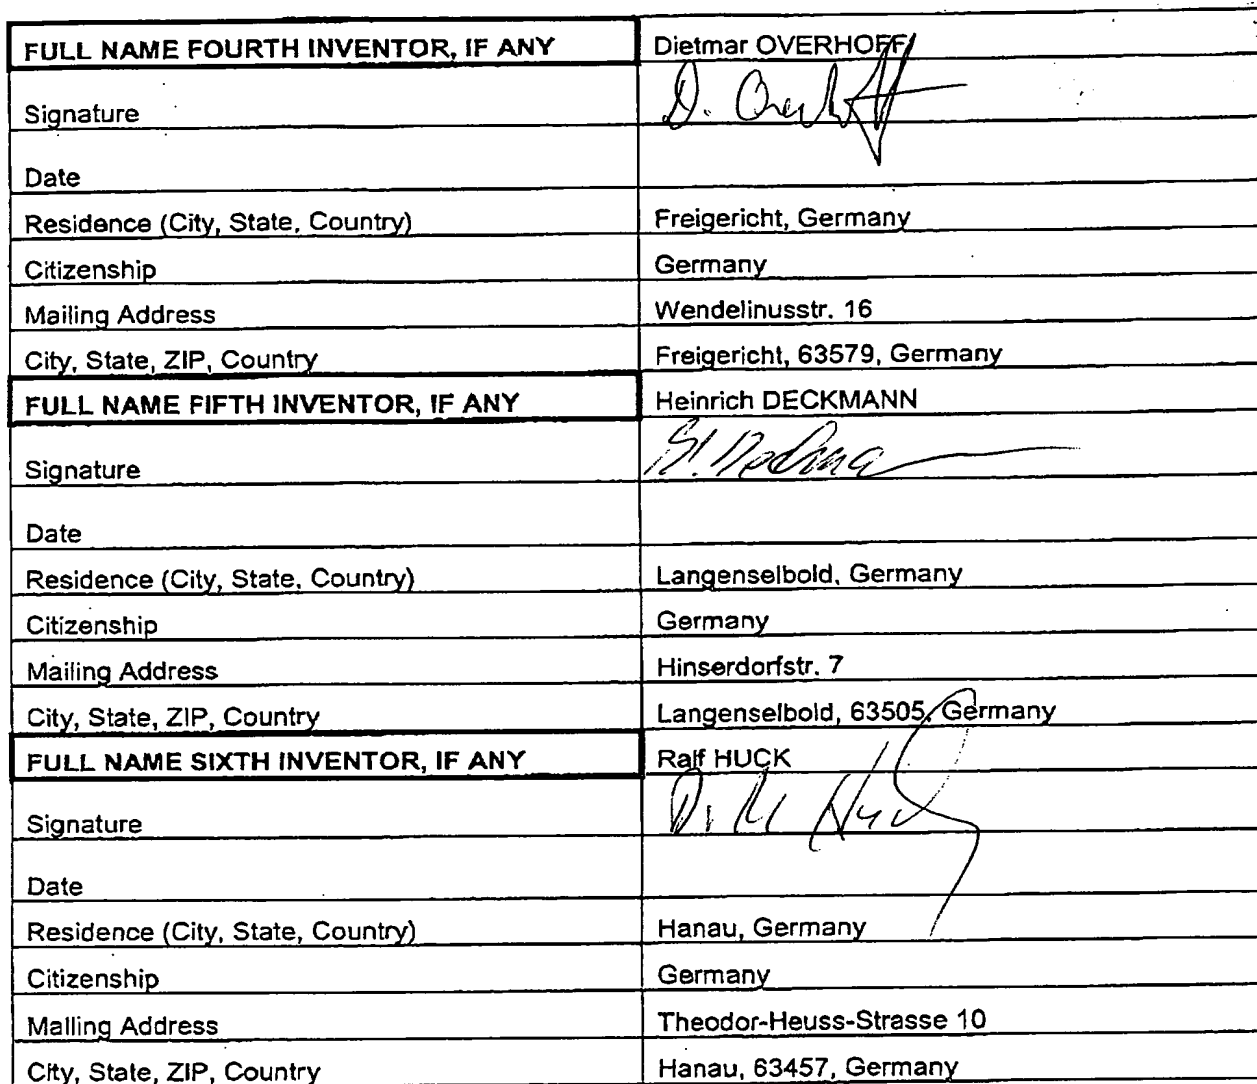 FULL NAME FOURTH INVENTOR, IF ANY Dietmar OVERHOFF
Signature D. Overhoff
Date
Residence (City, State, Country) Freigericht, Germany
Citizenship Germany
Mailing Address Wendelinusstr. 16
City, State, ZIP, Country Freigericht, 63579, Germany
FULL NAME FIFTH INVENTOR, IF ANY Heinrich DECKMANN
Signature
Date
Residence (City, State, Country) Langenselbold, Germany
Citizenship Germany
Mailing Address Hinserdorfstr. 7
City, State, ZIP, Country Langenselbold, 63505, Germany
FULL NAME SIXTH INVENTOR, IF ANY Ralf HUCK
Signature
Date
Residence (City, State, Country) Hanau, Germany
Citizenship Germany
Mailing Address Theodor-Heuss-Strasse 10
City, State, ZIP, Country Hanau, 63457, Germany